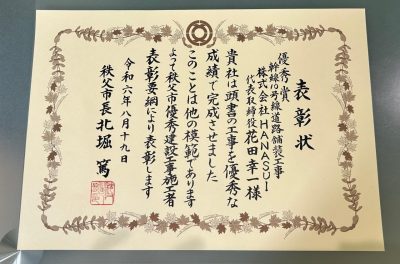 表彰状
優秀賞
幹線10号線道路舗装工事
株式会社HANASUI
代表取締役 花田幸一様
貴社は頭書の工事を優秀な
成績で完成させました
このことは他の模範であります
よって秩父市優秀建設工事施工者
表彰要綱により表彰します
令和六年八月十九日
秩父市長 北堀篤